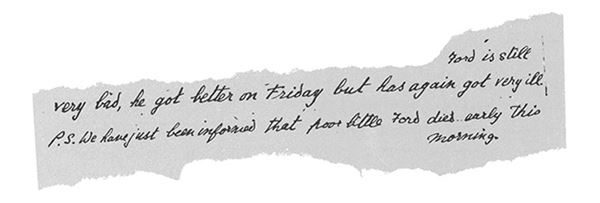 Ford is still
very bad, he got better on Friday but has again got very ill.
P.S. We have just been informed that poor little Ford died early this
morning.